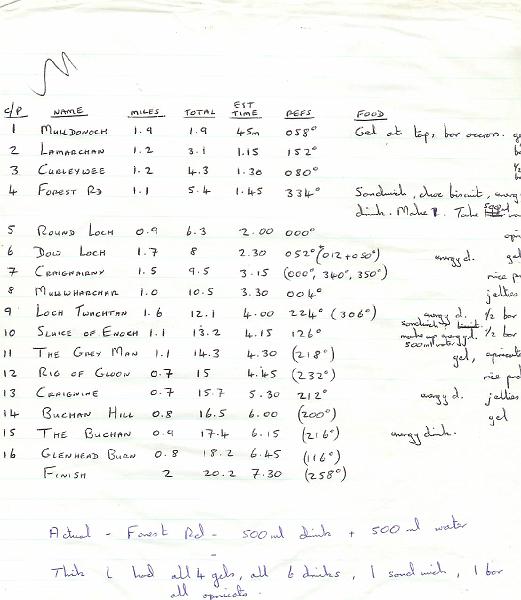 C/P NAME MILES TOTAL EST TIME REFS FOOD
1 MULLDONOCH 1.9 1.9 45m 058° Gel at top, bar occasn.
2 LAMARCHAN 1.2 3.1 1.15 152°
3 CURLEYWEE 1.2 4.3 1.30 080° 1/2
4 FOREST RD 1.1 5.4 1.45 334° Sandwich, choc biscuit, energy drink. Make 1. Take
5 ROUND LOCH 0.9 6.3 2.00 000°
6 DOW LOCH 1.7 8 2.30 052° (012 + 050°) energy d. gel
7 CRAIGNAIRNY 1.5 9.5 3.15 (000°, 340°, 350°) rice p
8 MULLWHARCHAR 1.0 10.5 3.30 004° jellies
9 LOCH TWACHTAN 1.6 12.1 4.00 224° (306°) energy d. 1/2 bar
10 SLUICE OF ENOCH 1.1 13.2 4.15 126° sandwich make up energy d. 500ml water 1/2 bar
11 THE GREY MAN 1.1 14.3 4.30 (218°) gel, apricots
12 RIG OF GLOON 0.7 15 4.45 (232°) rice p
13 CRAIGNINE 0.7 15.7 5.30 212° energy d. jellies
14 BUCHAN HILL 0.8 16.5 6.00 (200°) gel
15 THE BUCHAN 0.9 17.4 6.15 (216°) energy drink.
16 GLENHEAD BURN 0.8 18.2 6.45 (116°)
FINISH 2 20.2 7.30 (258°)
Actual - Forest Rd - 500ml drink + 500 ml water
Think I had all 4 gels, all 6 drinks, 1 sandwich, 1 bar
all apricots.